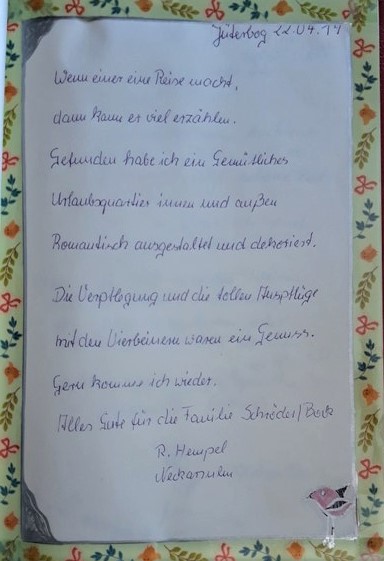 Jüterbog 22.04.19
Wenn einer eine Reise macht,
dann kann er viel erzählen.
Gefunden habe ich ein Gemütliches
Urlaubsquartier innen und außen
Romantisch ausgestaltet und dekoriert.
Die Verpflegung und die tollen Ausflüge
mit den Vierbeinern waren ein Genuss.
Gern komme ich wieder.
Alles Gute für die Familie Schröder/Bock
R. Hempel
Neckarsulm